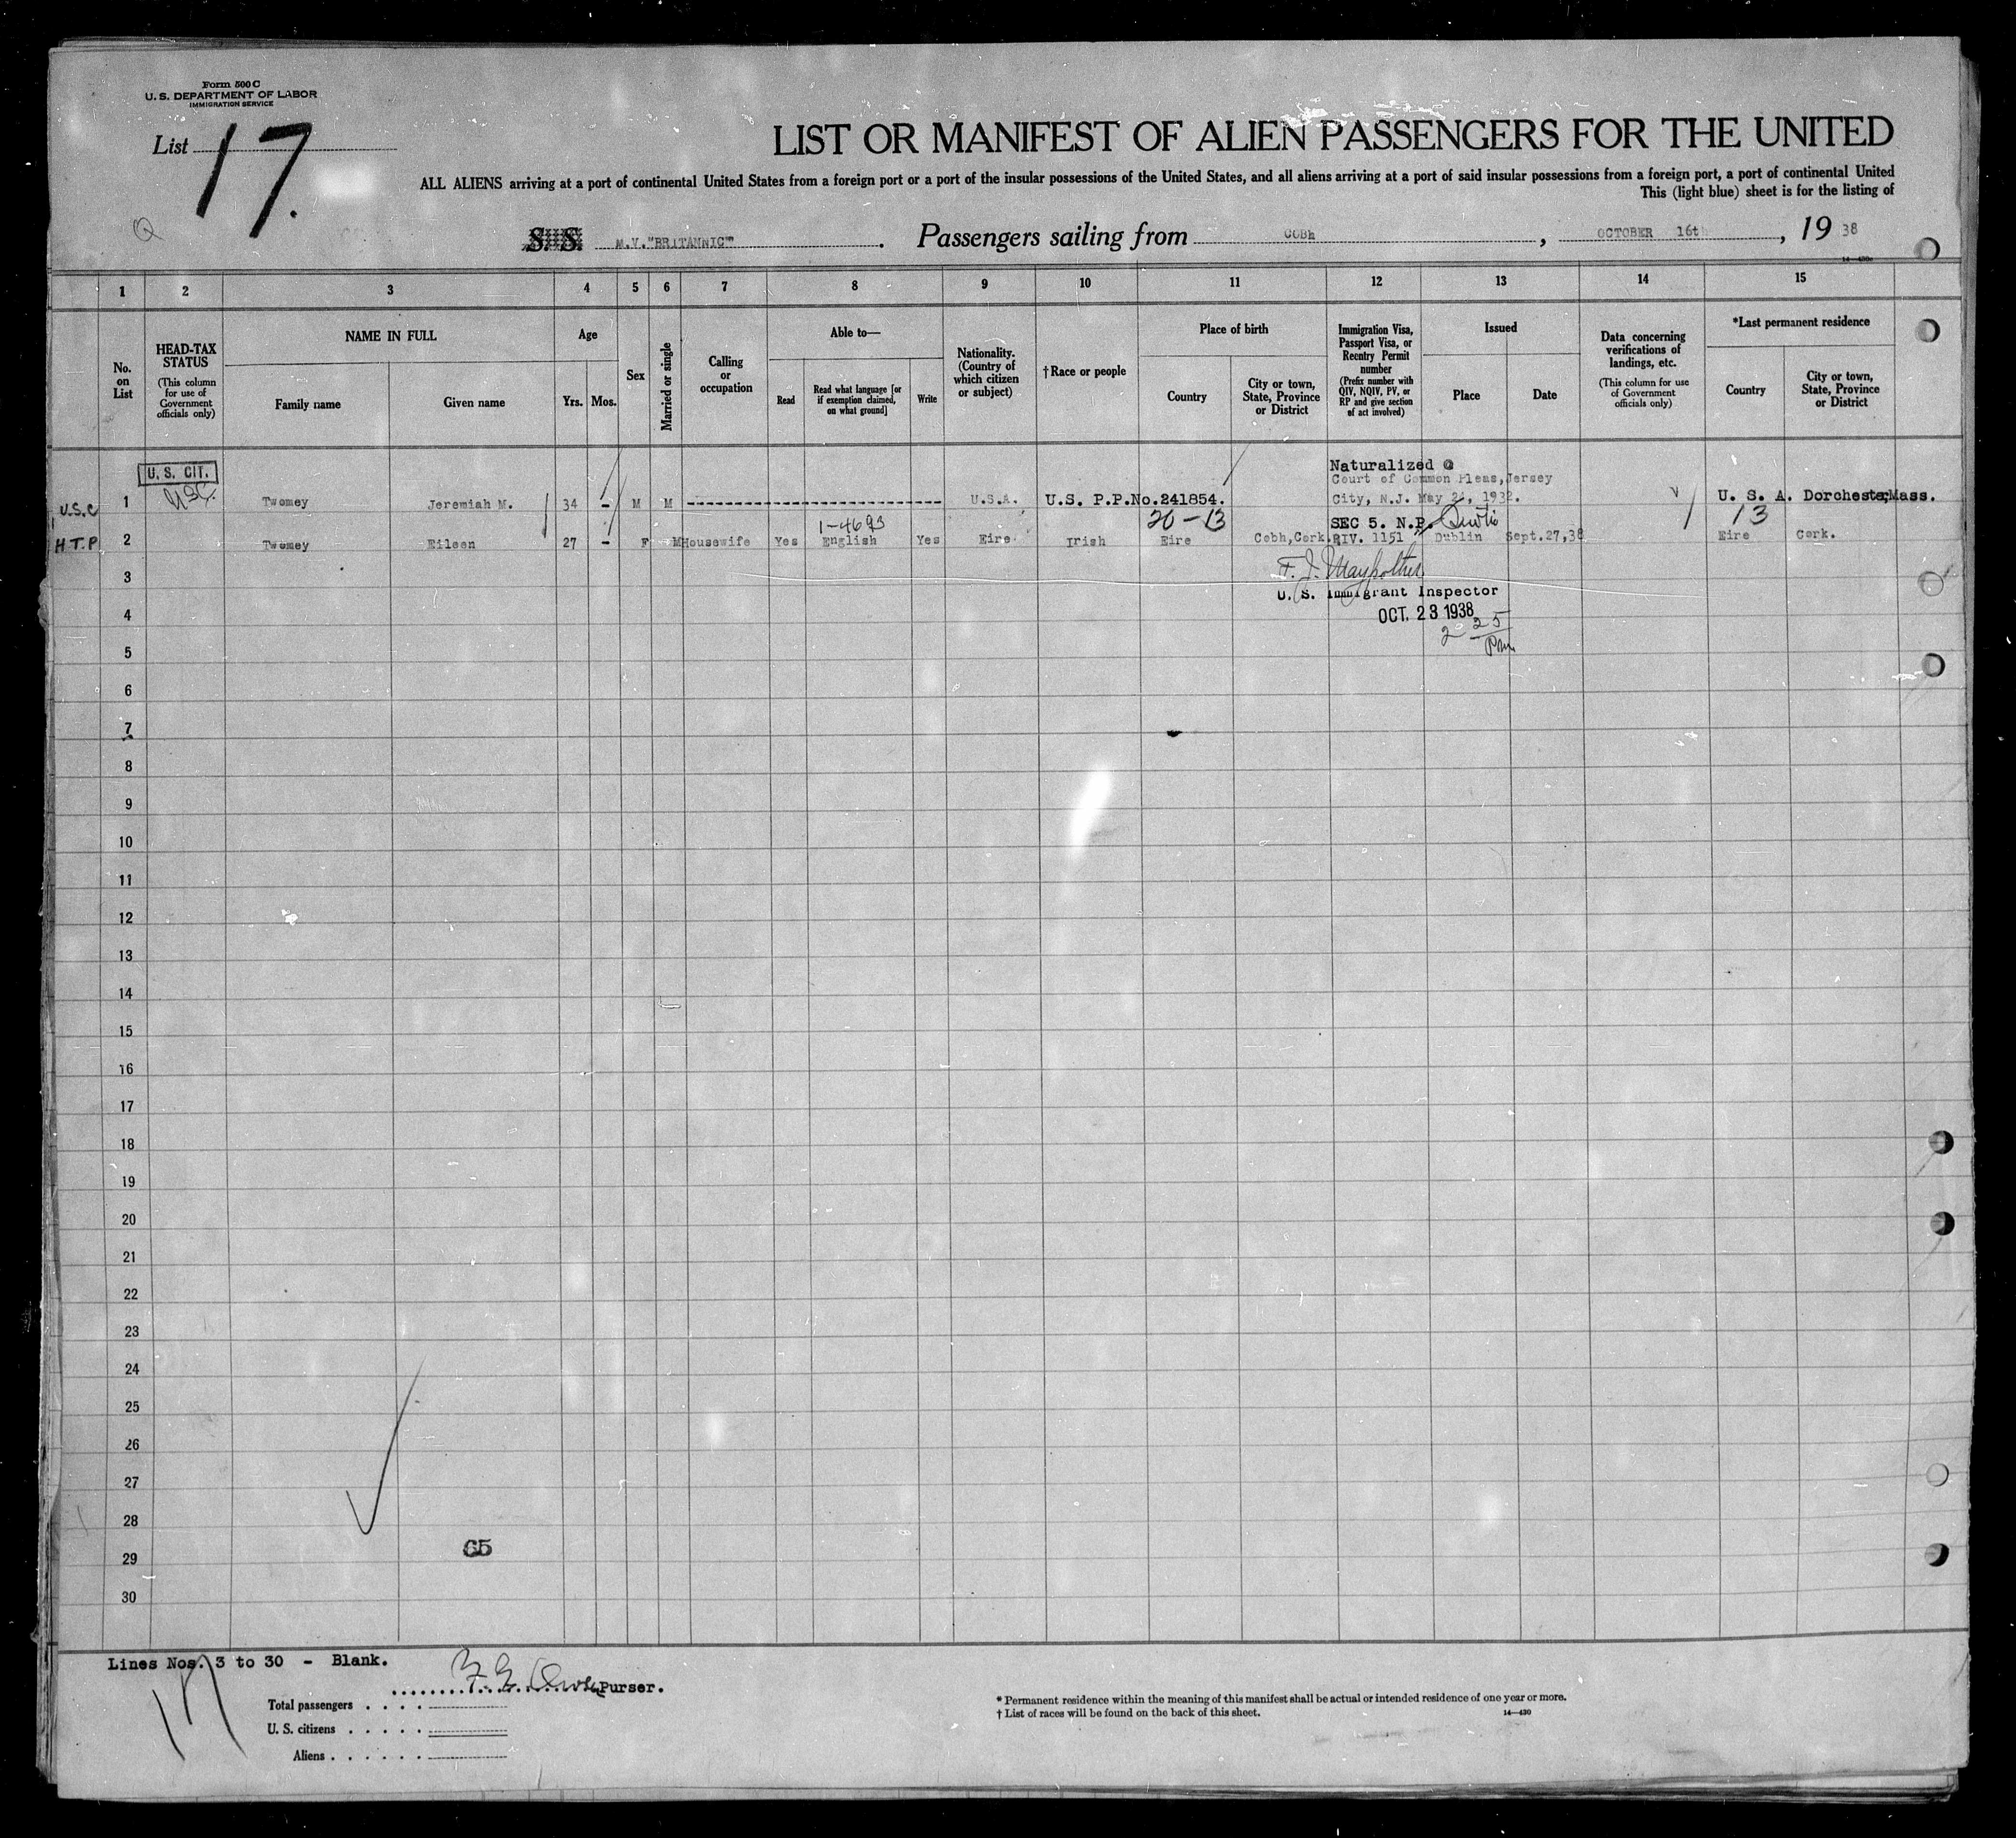 Form 500 C
U. S. DEPARTMENT OF LABOR
IMMIGRATION SERVICE
List 17.
LIST OR MANIFEST OF ALIEN PASSENGERS FOR THE UNITED
ALL ALIENS arriving at a port of continental United States from a foreign port or a port of the insular possessions of the United States, and all aliens arriving at a port of said insular possessions from a foreign port, a port of continental United
This (light blue) sheet is for the listing of
Q
S. S. M.V."BRITANNIC" . Passengers sailing from COBh , OCTOBER 16th , 19 38
1 2 3 4 5 6 7 8 9 10 11 12 13 14 15
No. on List
HEAD-TAX STATUS
(This column for use of Government officials only)
NAME IN FULL
Family name
Given name
Age
Yrs. Mos.
Sex
Married or single
Calling or occupation
Able to—
Read
Read what language [or if exemption claimed, on what ground]
Write
Nationality. (Country of which citizen or subject)
†Race or people
Place of birth
Country
City or town, State, Province or District
Immigration Visa, Passport Visa, or Reentry Permit number
(Prefix number with QIV, NQIV, PV, or RP and give section of act involved)
Issued
Place
Date
Data concerning verifications of landings, etc.
(This column for use of Government officials only)
*Last permanent residence
Country
City or town, State, Province or District
U. S. CIT.
Naturalized @
Court of Common Pleas, Jersey
U.S.C 1 USC. Twomey Jeremiah M. 34 - M M U.S.A. U.S. P.P.No.241854. City, N.J. May 1932. U. S. A. Dorchester, Mass.
1-4693 20-13 SEC 5. N.P. 13
H.T.P 2 Twomey Eileen 27 - F M Housewife Yes English Yes Eire Irish Eire Cobh, Cork. RIV. 1151 Dublin Sept.27,38 Eire Cork.
3
U. S. Immigrant Inspector
4
OCT. 23 1938
2 25
Pm
5
6
7
8
9
10
11
12
13
14
15
16
17
18
19
20
21
22
23
24
25
26
27
28
65
29
30
Lines Nos. 3 to 30 - Blank.
Purser.
Total passengers
U. S. citizens
Aliens
* Permanent residence within the meaning of this manifest shall be actual or intended residence of one year or more.
† List of races will be found on the back of this sheet.
14—430